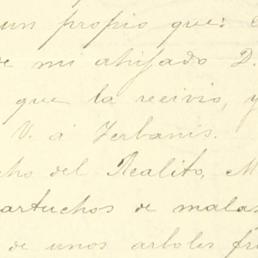 un propio que
de mi ahijado D.
que la recivio, y
V. á Yerbanis.
cho del Realito, M
artuchos de malas
de unos arboles fr